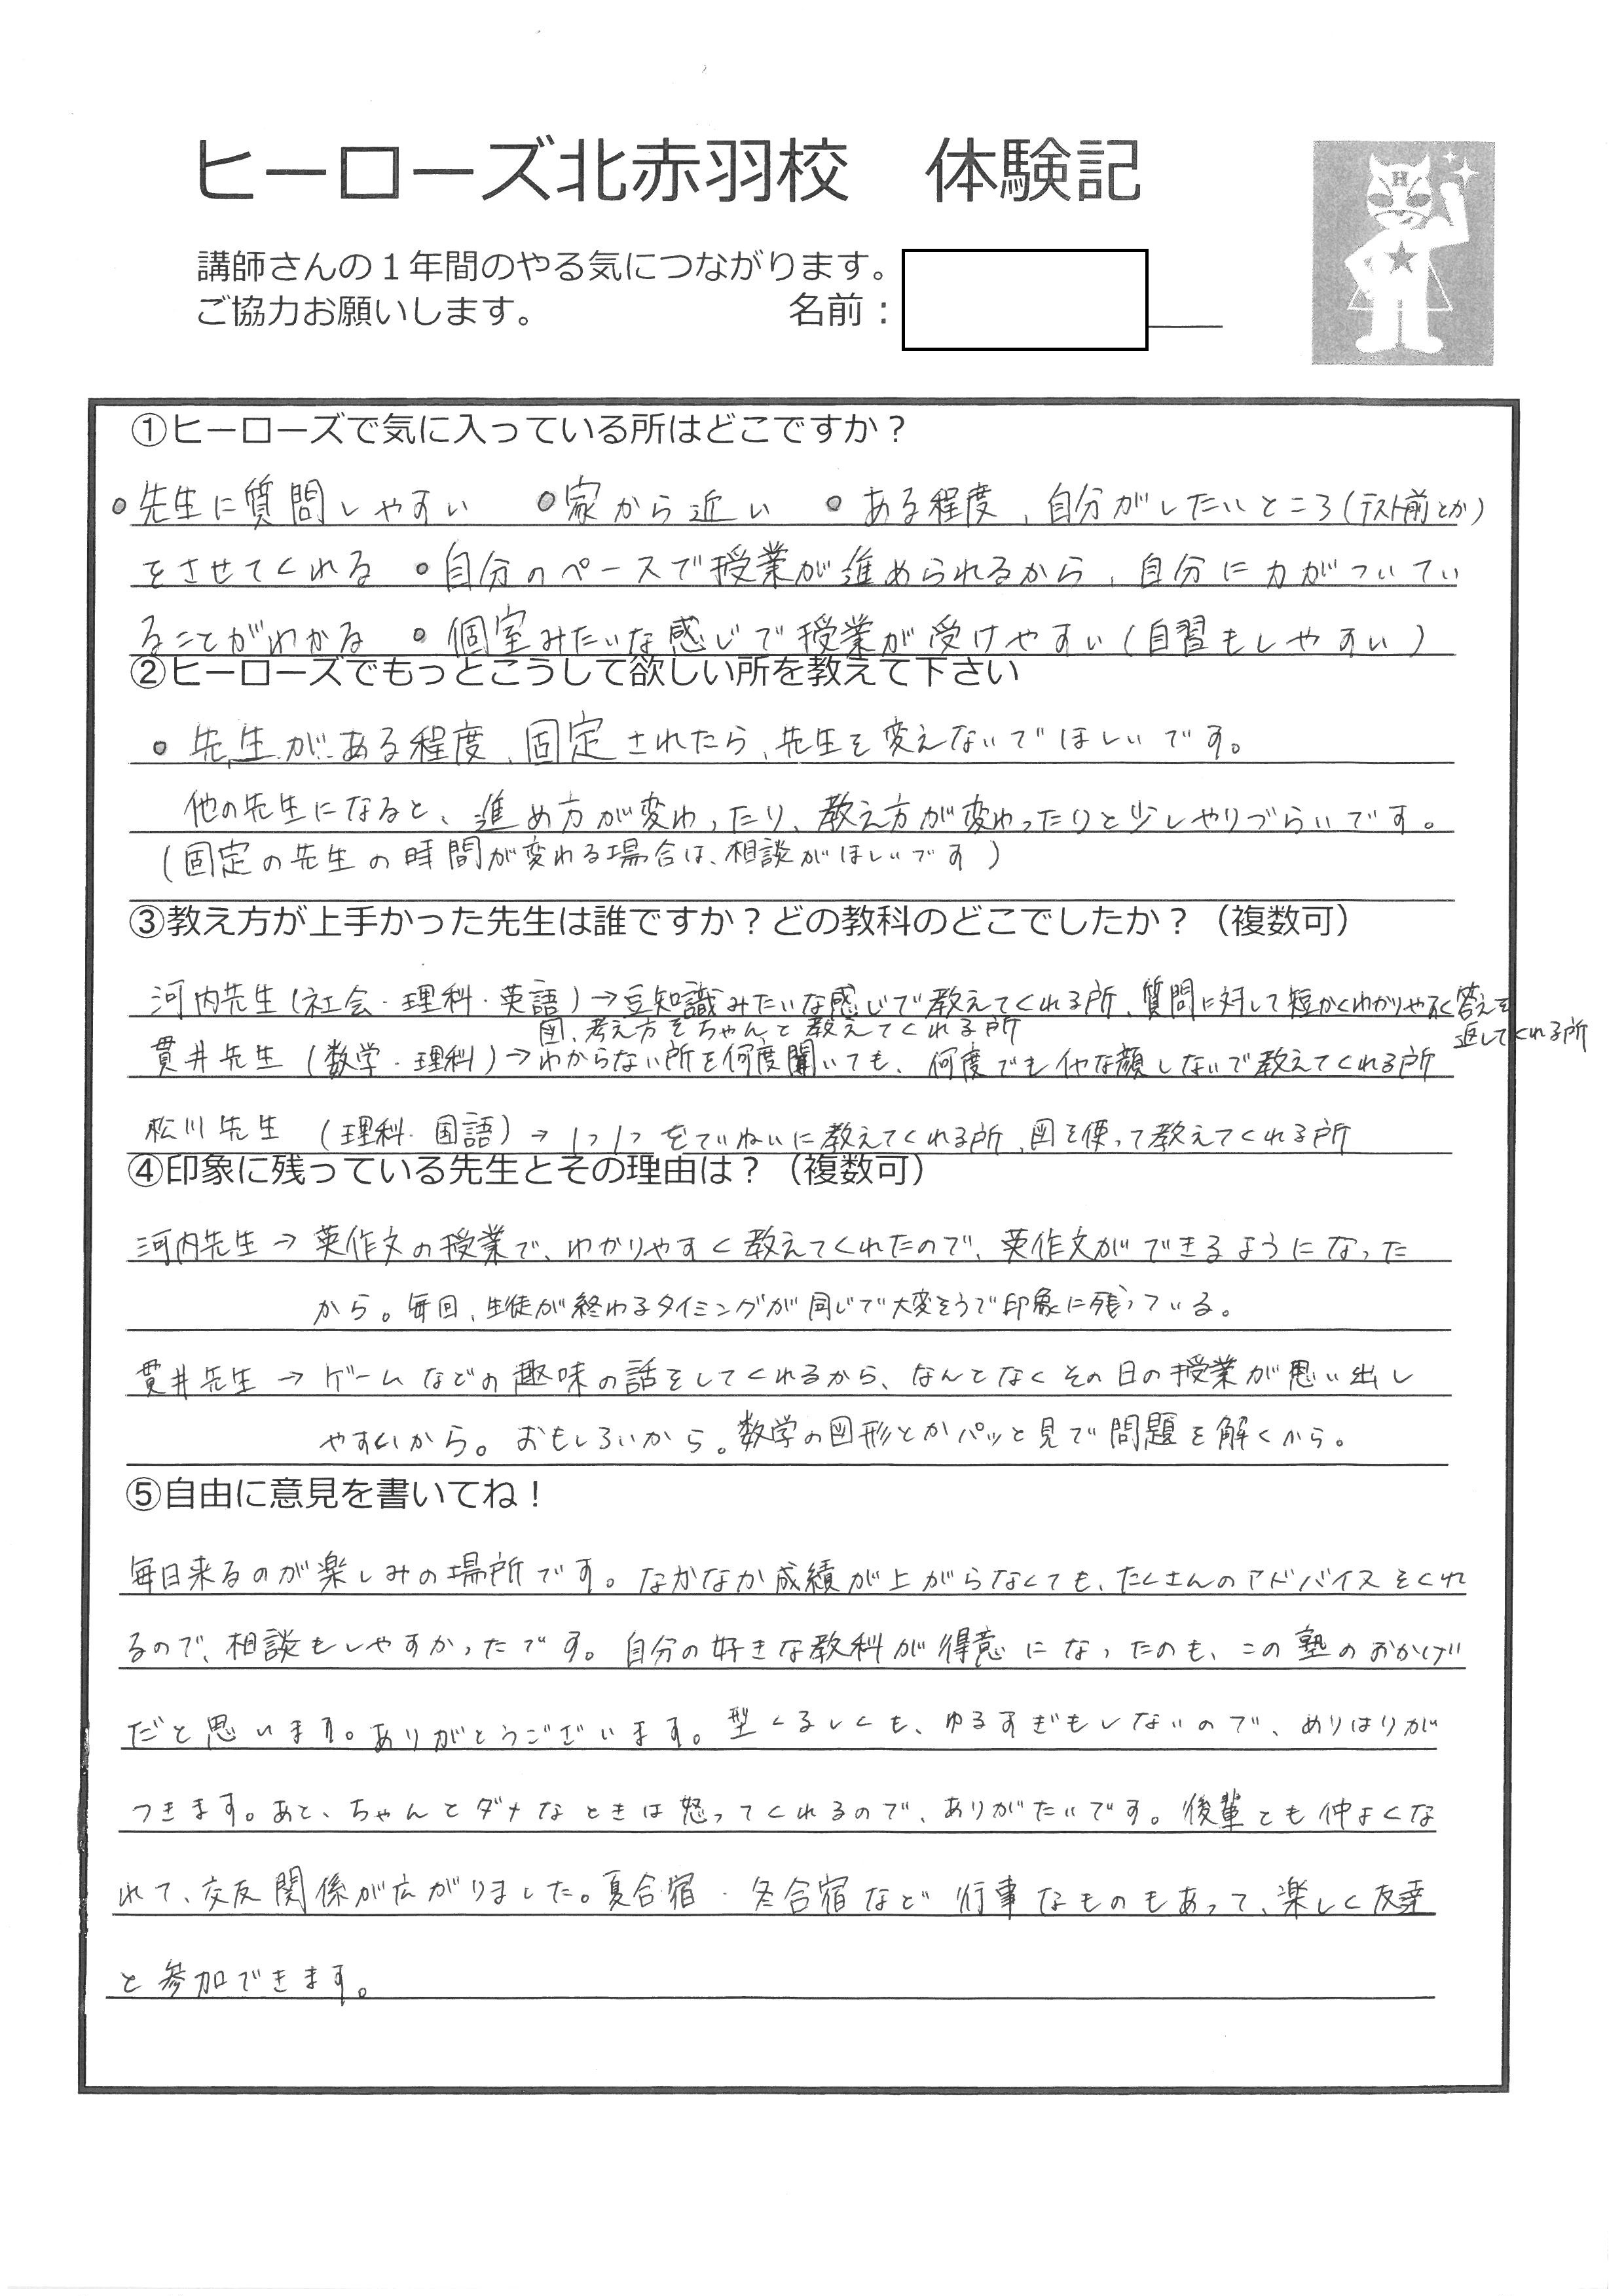 ヒーローズ北赤羽校 体験記
講師さんの１年間のやる気につながります。
ご協力お願いします。 名前：
①ヒーローズで気に入っている所はどこですか？
・先生に質問しやすい ・家から近い ・ある程度、自分がしたいところ(テスト前とか)
をさせてくれる ・自分のペースで授業が進められるから、自分に力がついてい
ることがわかる ・個室みたいな感じで授業が受けやすい(自習もしやすい)
②ヒーローズでもっとこうして欲しい所を教えて下さい
・先生がある程度、固定されたら、先生を変えないでほしいです。
他の先生になると、進め方が変わったり、教え方が変わったりと少しやりづらいです。
(固定の先生の時間が変わる場合は、相談がほしいです)
③教え方が上手かった先生は誰ですか？どの教科のどこでしたか？（複数可）
河内先生(社会・理科・英語)→豆知識みたいな感じで教えてくれる所、質問に対して短かくわかりやすく答えを
返してくれる所
図、考え方をちゃんと教えてくれる所
貫井先生(数学・理科)→わからない所を何度聞いても、何度でもイヤな顔しないで教えてくれる所
松川先生(理科・国語)→1つ1つをていねいに教えてくれる所、図を使って教えてくれる所
④印象に残っている先生とその理由は？（複数可）
河内先生→英作文の授業で、わかりやすく教えてくれたので、英作文ができるようになった
から。毎回、生徒が終わるタイミングが同じで大変そうで印象に残っている。
貫井先生→ゲームなどの趣味の話をしてくれるから、なんとなくその日の授業が思い出し
やすいから。おもしろいから。数学の図形とかパッと見で問題を解くから。
⑤自由に意見を書いてね！
毎日来るのが楽しみの場所です。なかなか成績が上がらなくても、たくさんのアドバイスをくれ
るので、相談もしやすかったです。自分の好きな教科が得意になったのも、この塾のおかげ
だと思います。ありがとうございます。型くるしくも、ゆるすぎもしないので、めりはりが
つきます。あと、ちゃんとダメなときは怒ってくれるので、ありがたいです。後輩とも仲よくな
れて、交友関係が広がりました。夏合宿・冬合宿など行事なものもあって、楽しく友達
と参加できます。